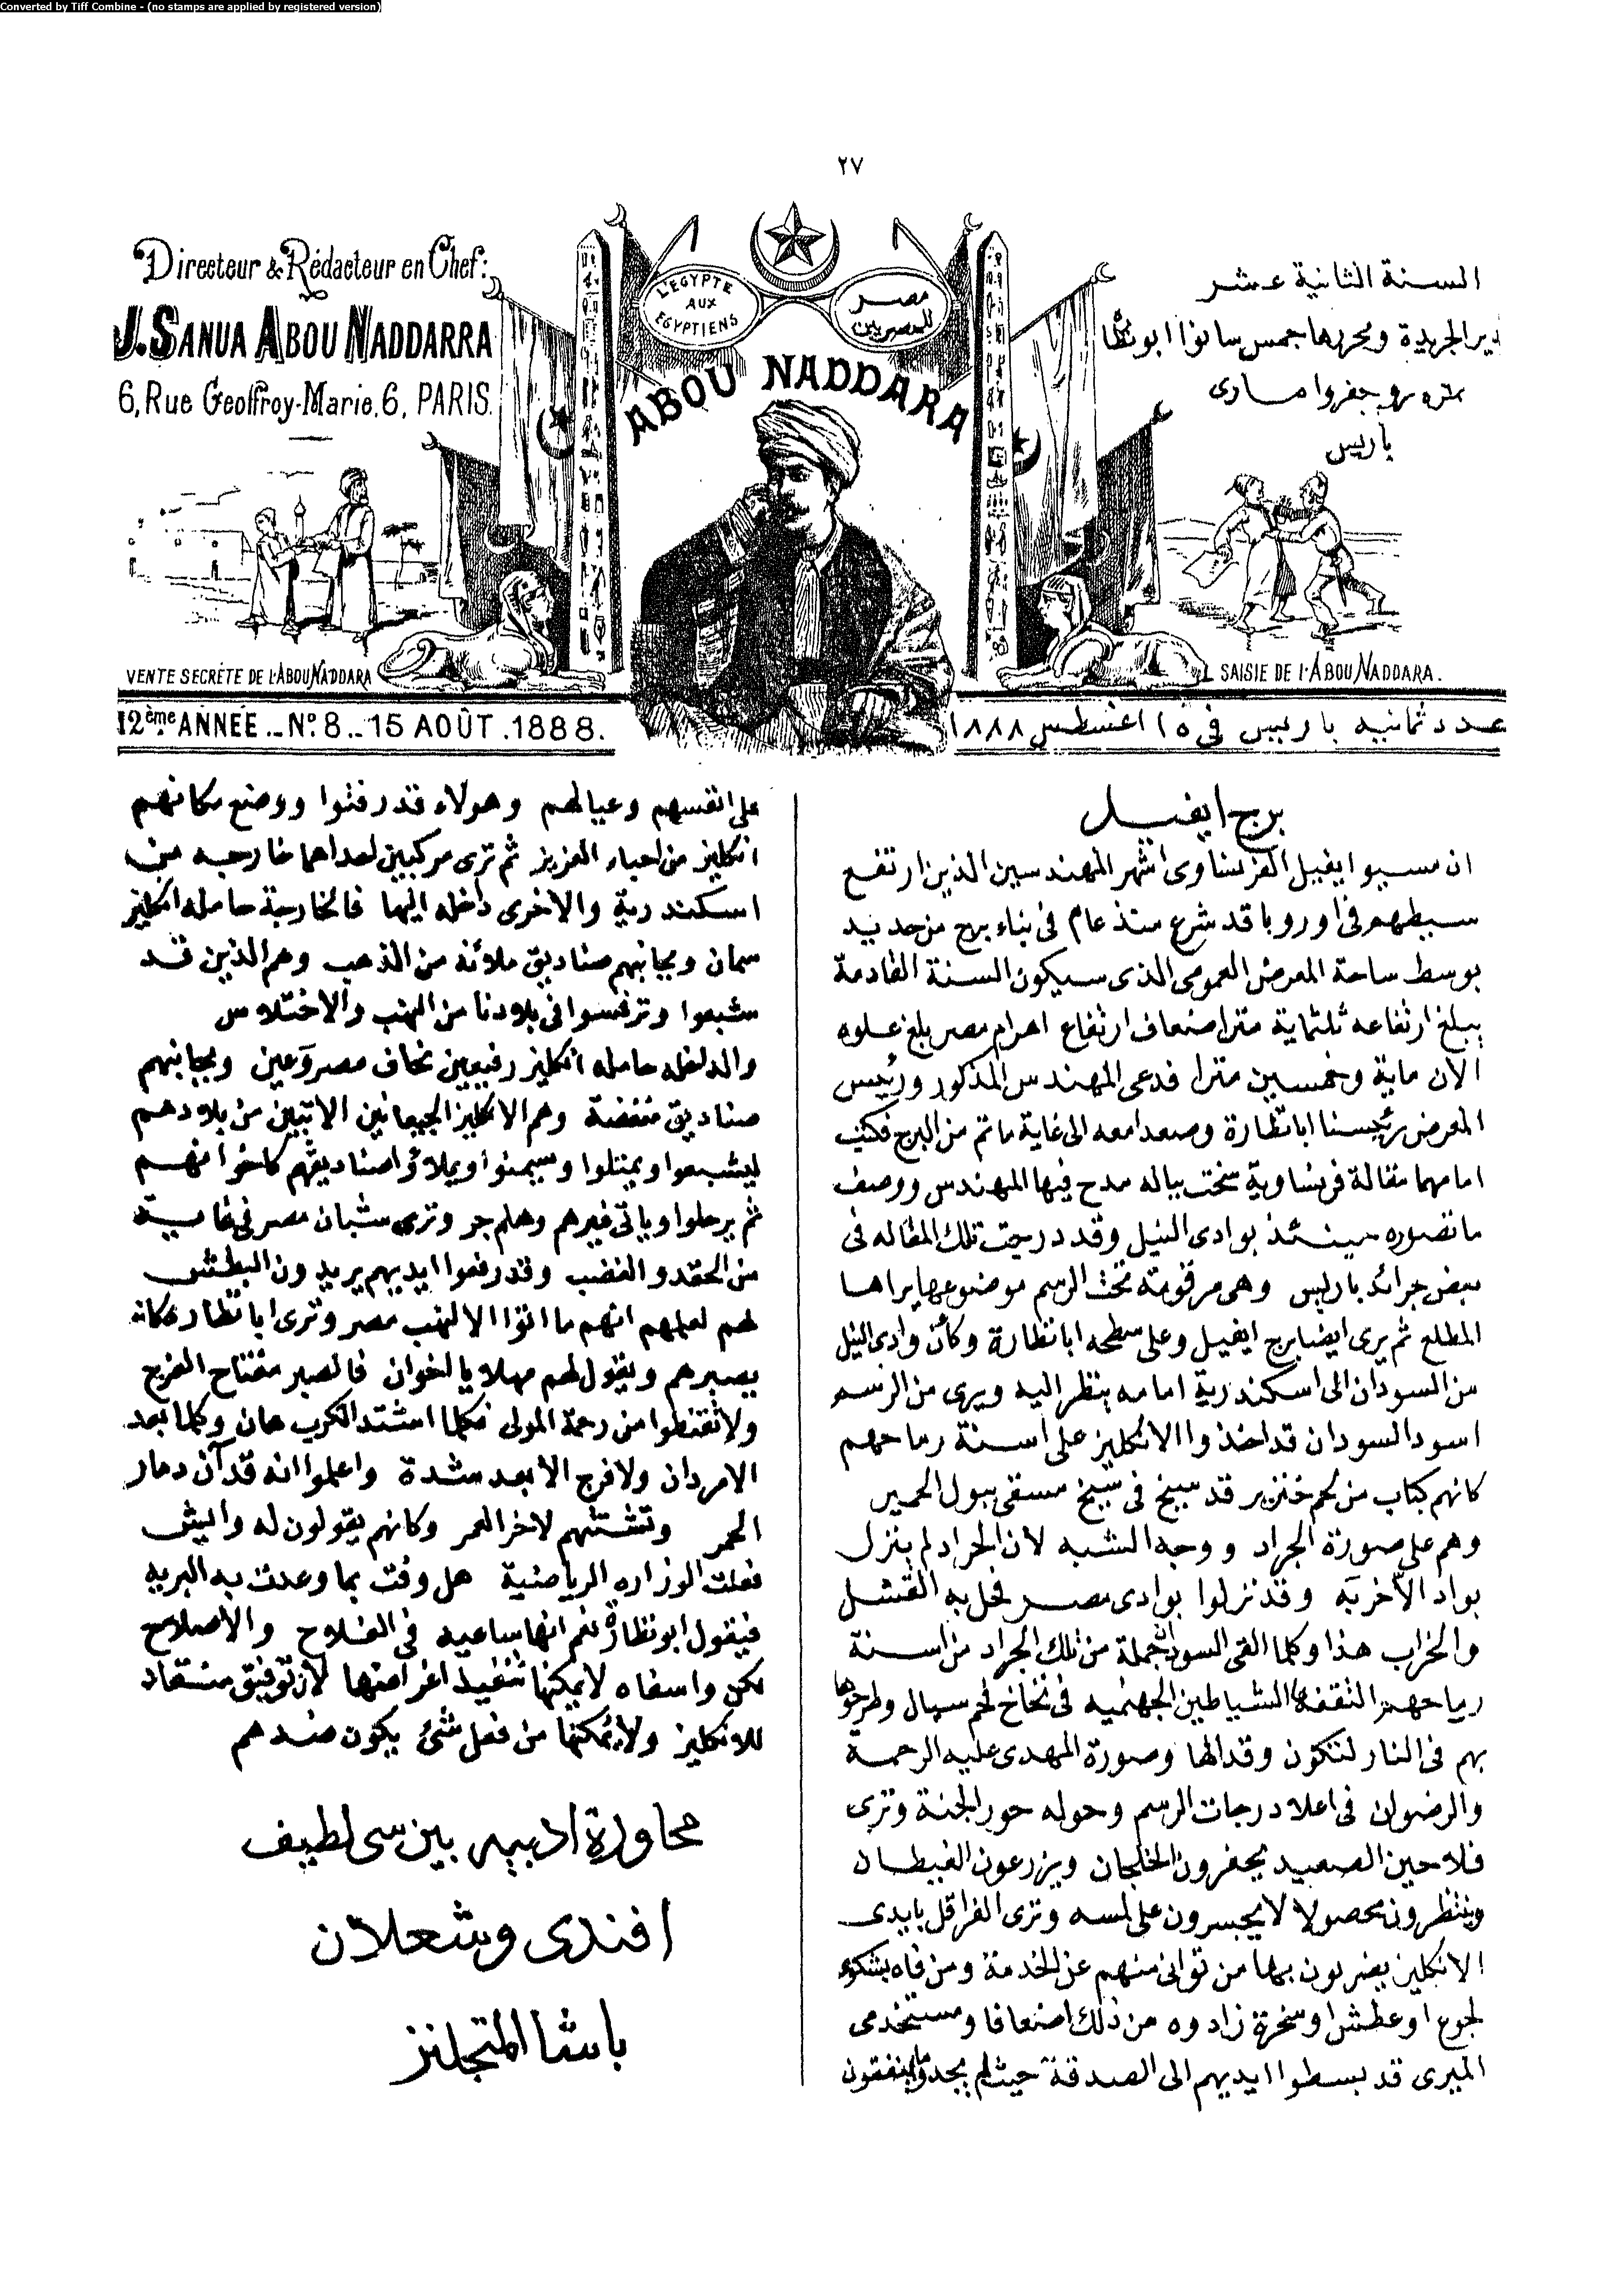 Converted by Tiff Combine - (no stamps are applied by registered version)
٢٧
Directeur & Rédacteur en Chef:
J. SANUA ABOU NADDARRA
6, Rue Geoffroy-Marie, 6, PARIS.
L'EGYPTE
AUX
EGYPTIENS
مصر
للمصريين
ABOU NADDARA
السنة الثانية عشر
دير الجريدة ومحررها جمس سانوا ابو نظا
نمره ٦ روجفروا مارى
باريس
VENTE SECRÈTE DE L'ABOU NADDARA
SAISIE DE L'ABOU NADDARA.
12ème ANNÉE _ Nº 8 _ 15 AOÛT . 1888.
عدد ثمانيه باريس في ١٥ اغسطس ١٨٨٨
برج ايفيل
ان مسيو ايفيل الفرنساوى اشهر المهندسين الذين ارتفع
سيطهم فى اوروبا قد شرع منذ عام فى بناء برج من حديد
بوسط ساحة المعرض العمومى الذى سيكون السنة القادمة
يبلغ ارتفاعه ثلثماية مترا ضعاف ارتفاع اهرام مصر بلغ علوه
الان ماية وخمسين مترا فدعى المهندس المذكور ورئيس
المعرض رئيسنا ابا نظارة وصعدا معه الى غاية ما تم من البرج فكتب
امامهما مقالة فرنساوية سخت بباله مدح فيها المهندس ووصف
ما تصوره حينئذ بوادى النيل وقد درجت تلك المقاله فى
بعض جرائد باريس وهى مرقومة تحت الرسم موضوعها يراها
المطلع ثم يرى ايضا برج ايفيل وعلى سطحه ابا نظارة وكأن وادى النيل
من السودان الى اسكندرية امامه ينظر اليه ويرى من الرسم
اسود السودان قد اخذوا الانكليز على اسنة رماحهم
كانهم كباب من لحم خنزير قد سيخ فى سيخ مسقى ببول الحمير
وهم على صورة الجراد ووجه الشبه لان الجراد لم ينزل
بواد الا خربه وقد نزلوا بوادى مصر فحل به الفشل
والخراب هذا وكلما القى السودان جملة من تلك الجراد من اسنة
رماحهم التقفها الشياطين الجهنميه فى نخاخ لحم سيال وطرحوها
بهم فى النار لتكون وقدا لها وصورة المهدى عليه الرحمة
والرضوان فى اعلا درجات الرسم وحوله حور الجنة وترى
فلاحين الصعيد يحفرون الخلجان ويزرعون الغيطان
وينتظرون محصولا لا يجسرون على لمسه وترى الفراقل بايدى
الانكليز يضربون بها من توانى منهم عن الخدمة ومن فاه بشكوى
لجوع او عطش او سخرة زادوه من ذلك اضعافا ومستخدمى
الميرى قد بسطوا ايديهم الى الصدقة حيث لم يجدوا ما ينفقون
على انفسهم وعيالهم وهولاء قد رفتوا ووضع مكانهم
انكليز من احباء العزيز ثم ترى مركبين احداهما خارجه من
اسكندرية والاخرى داخله اليها فالخارجة حامله انكليز
سمان وبجانبهم صناديق ملائنه من الذهب وهم الذين قد
شبعوا وترفسوا فى بلادنا من النهب والاختلاس
والداخله حامله انكليز رفيعين نحاف مصروَعين وبجانبهم
صناديق مفضضة وهم الانكليز الجيعانين الاتيين من بلادهم
ليشبعوا ويمتلوا وسيمنوا ويملاؤا صناديقهم كاخوانهم
ثم يرحلوا وياتى غيرهم وهلم جر وترى شبان مصر فى غاية
من الحقد والغضب وقد رفعوا ايديهم يريدون البطش
لهم لعلمهم انهم ما اتوا الا لنهب مصر وترى ابا نظاره كانه
يصبرهم ويقول لهم مهلا يا اخوان فالصبر مفتاح الفرج
ولا تقنطوا من رحمة المولى فكلما اشتد الكرب هان وكلما بعد
الامر دان ولا فرج الا بعد شدة واعلموا انه قد آن دمار
الحمر وتشتتهم لاخر العمر وكانهم يقولون له وايش
فعلت الوزاره الرياضية هل وفت بما وعدت به البريه
فيقول ابو نظارة نعم انها ساعيه فى الفلاح والاصلاح
لكن واسفاه لا يمكنها تنفيذ اغراضها لان توفيق منقاد
للانكليز ولا يمكنها من فعل شئ يكون ضدهم
محاورة ادبيه بين سى لطيف
افندى وشعلان
باشا المتجلنز